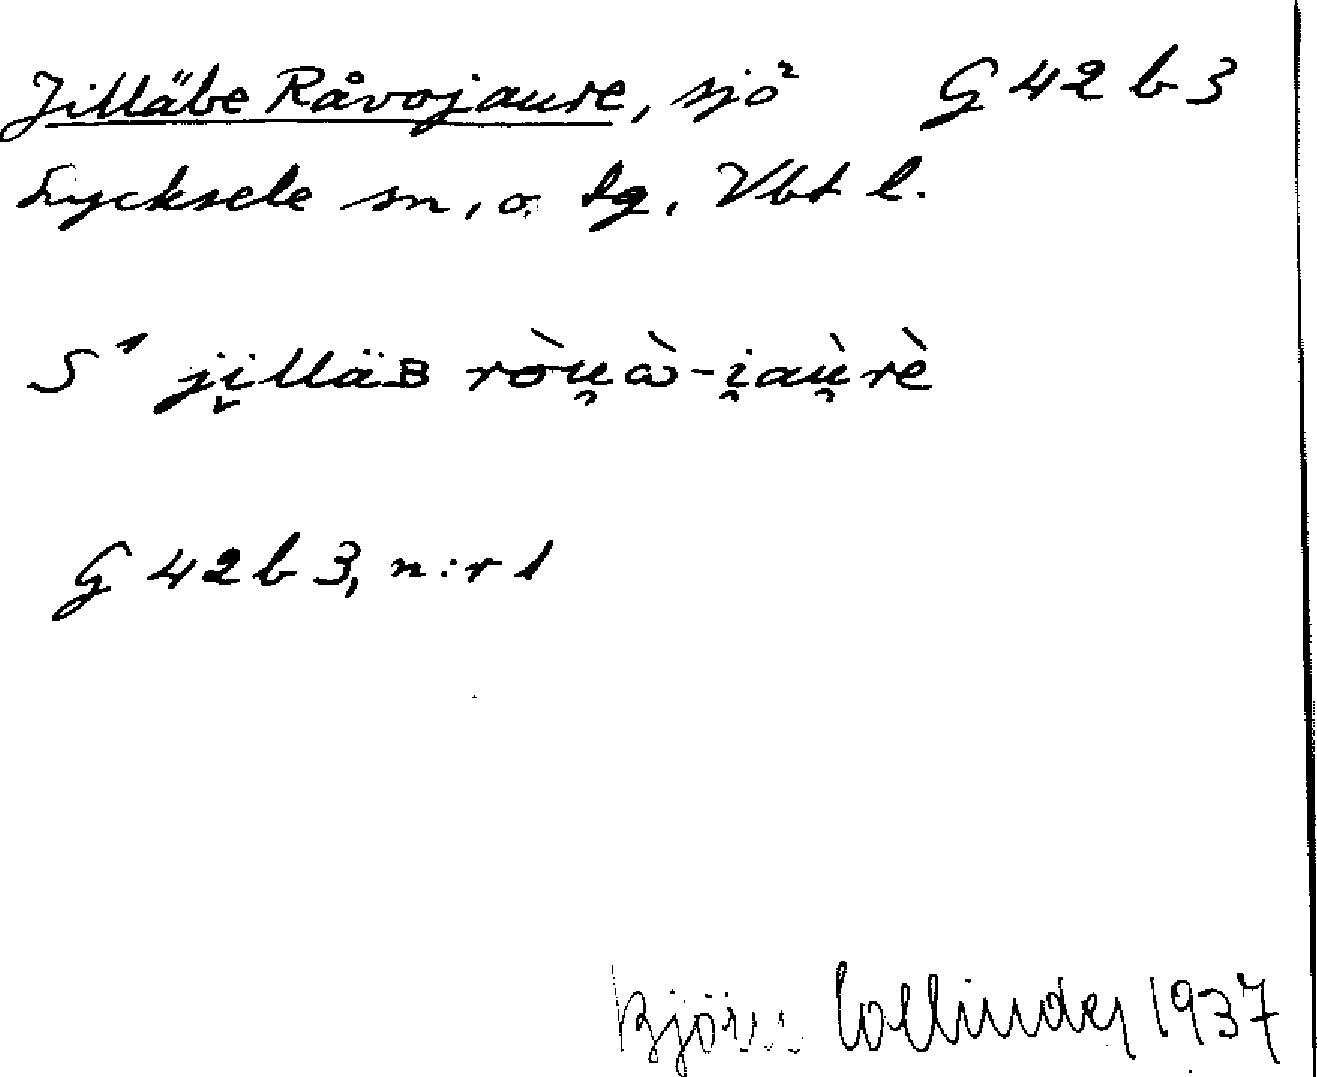 Jilläbe Råvojaure, sjö G 42 b 3
Lycksele sn, o. tg. Vbt l.
S¹ ji̬lläʙ ròu̯ὼ-i̯aù̯rè
G 42 b 3, n:r 1
Björn Collinder 1937